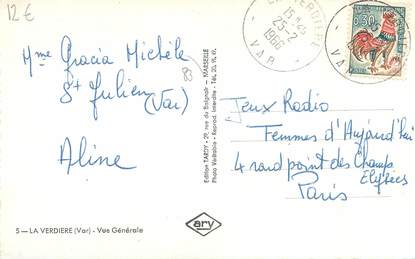 12€
LA VERDIERE
15H45
25-2
1966
VAR
0,30
VAR
Mme Gracia Michèle
83
St Julien
(Var)
Aline
Edition TARDY - 29, rue du Baignoir - MARSEILLE
Photo Véritable - Reprod. Interdite - Tél. 20. 91. 49.
Jeux Radio
Femmes d'Aujourd'hui
4 rond point des Champs
Elysées
Paris
5 — LA VERDIERE (Var) - Vue Générale
ary